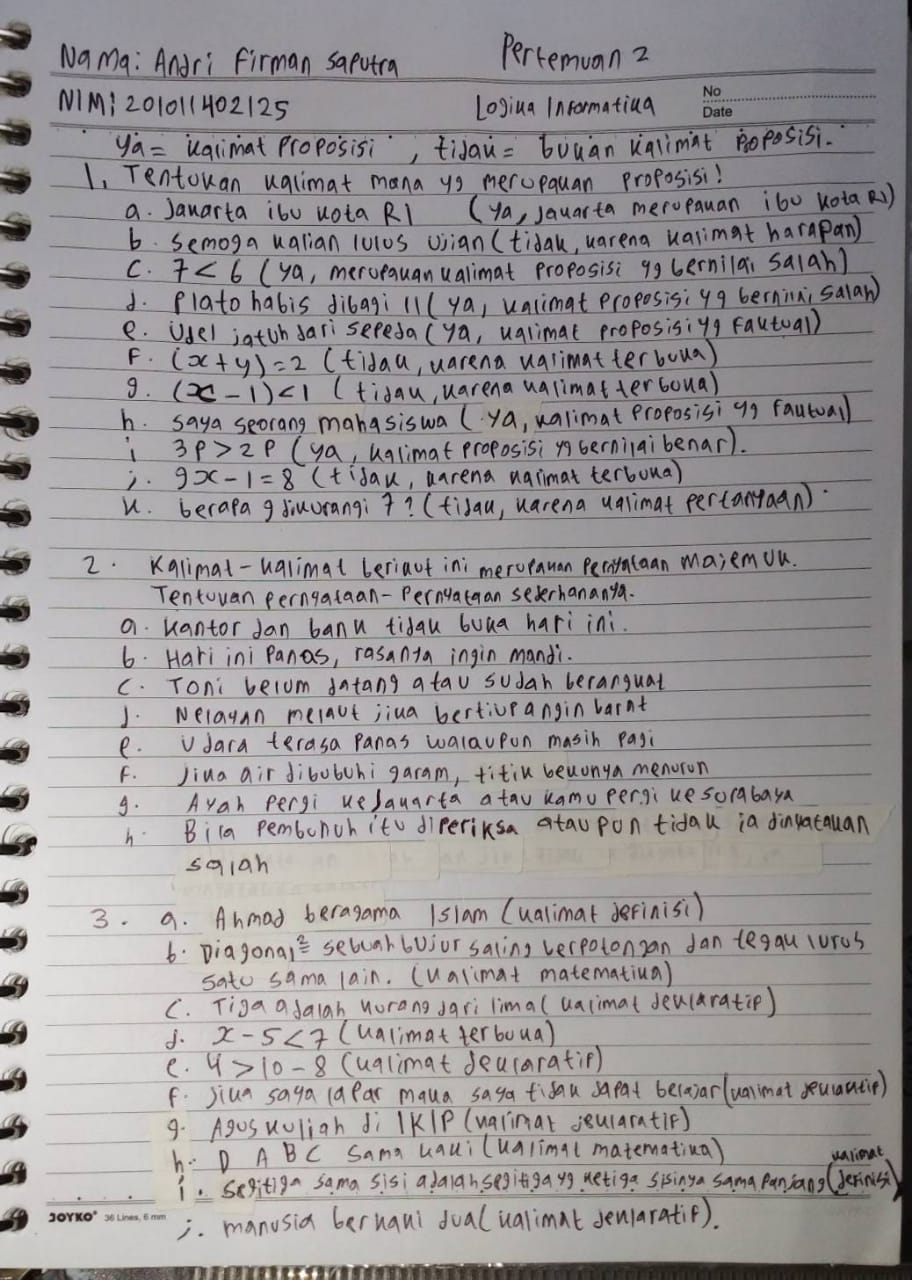 Nama: Andri Firman Saputra Pertemuan 2
NIM: 201011402125 Logika Informatika No
Date
Ya = kalimat proposisi , tidak = bukan kalimat proposisi.
1. Tentukan kalimat mana yg merupakan proposisi!
a. Jakarta ibu kota RI (Ya, Jakarta merupakan ibu kota RI)
b. Semoga kalian lulus ujian (tidak, karena kalimat harapan)
c. 7 < 6 (ya, merupakan kalimat proposisi yg bernilai salah)
d. Plato habis dibagi 11 (ya, kalimat proposisi yg bernilai salah)
e. Udel jatuh dari sepeda (ya, kalimat proposisi yg faktual)
f. (x+y)=2 (tidak, karena kalimat terbuka)
g. (x-1)<1 (tidak, karena kalimat terbuka)
h. saya seorang mahasiswa (ya, kalimat proposisi yg faktual)
i 3p > 2p (ya, kalimat proposisi yg bernilai benar).
j. 9x-1=8 (tidak, karena kalimat terbuka)
k. berapa 9 dikurangi 7? (tidak, karena kalimat pertanyaan).
2. Kalimat-kalimat berikut ini merupakan pernyataan majemuk.
Tentukan pernyataan-pernyataan sederhananya.
a. kantor dan bank tidak buka hari ini.
b. Hari ini panas, rasanya ingin mandi.
c. Toni belum datang atau sudah berangkat
d. Nelayan melaut jika bertiup angin barat
e. Udara terasa panas walaupun masih pagi
f. Jika air dibubuhi garam, titik bekunya menurun
g. Ayah pergi ke Jakarta atau kamu pergi ke Surabaya
h. Bila pembunuh itu diperiksa ataupun tidak ia dinyatakan
salah
3. a. Ahmad beragama Islam (kalimat definisi)
b. Diagonal² sebuah bujur saling berpotongan dan tegak lurus
satu sama lain. (kalimat matematika)
c. Tiga adalah kurang dari lima (kalimat deklaratif)
d. x-5<7 (kalimat terbuka)
e. 4>10-8 (kalimat deklaratif)
f. Jika saya lapar maka saya tidak dapat belajar (kalimat deklaratif)
g. Agus kuliah di IKIP (kalimat deklaratif)
h. D ABC sama kaki (kalimat matematika)
i. segitiga sama sisi adalah segitiga yg ketiga sisinya sama panjang (kalimat definisi)
j. manusia berkaki dua (kalimat deklaratif).
JOYKO® 36 Lines, 6 mm